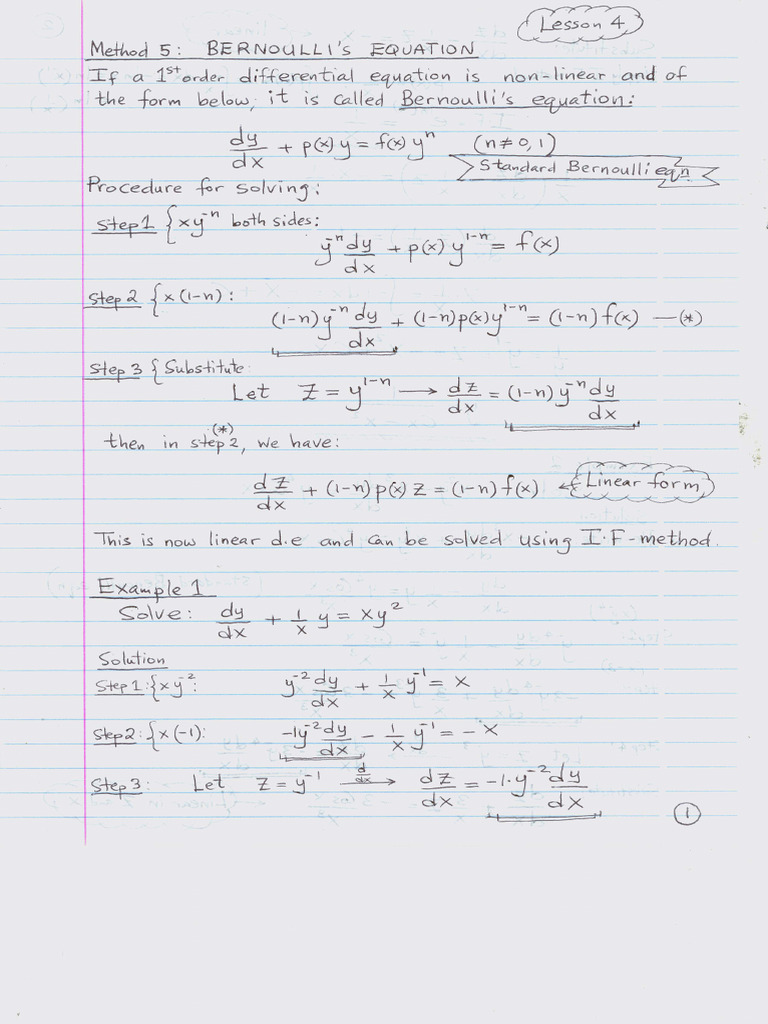 Lesson 4
Method 5: BERNOULLI's EQUATION
If a 1st order differential equation is non-linear and of
the form below, it is called Bernoulli's equation:
dy/dx + p(x) y = f(x) y^n (n≠0, 1)
Standard Bernoulli eqn
Procedure for solving:
Step 1 { x y^-n both sides:
y^-n dy/dx + p(x) y^1-n = f(x)
Step 2 { x (1-n) :
(1-n) y^-n dy/dx + (1-n) p(x) y^1-n = (1-n) f(x) — (*)
Step 3 { Substitute
Let Z = y^1-n → dz/dx = (1-n) y^-n dy/dx
then in step 2 (*), we have:
dZ/dx + (1-n) p(x) Z = (1-n) f(x) ← Linear form
This is now linear d.e and can be solved using I.F-method.
Example 1
Solve: dy/dx + 1/x y = xy^2
Solution
Step 1: { x y^-2: y^-2 dy/dx + 1/x y^-1 = x
Step 2: { x (-1): -1y^-2 dy/dx - 1/x y^-1 = -x
Step 3: Let Z = y^-1 d/dx → dZ/dx = -1·y^-2 dy/dx
1